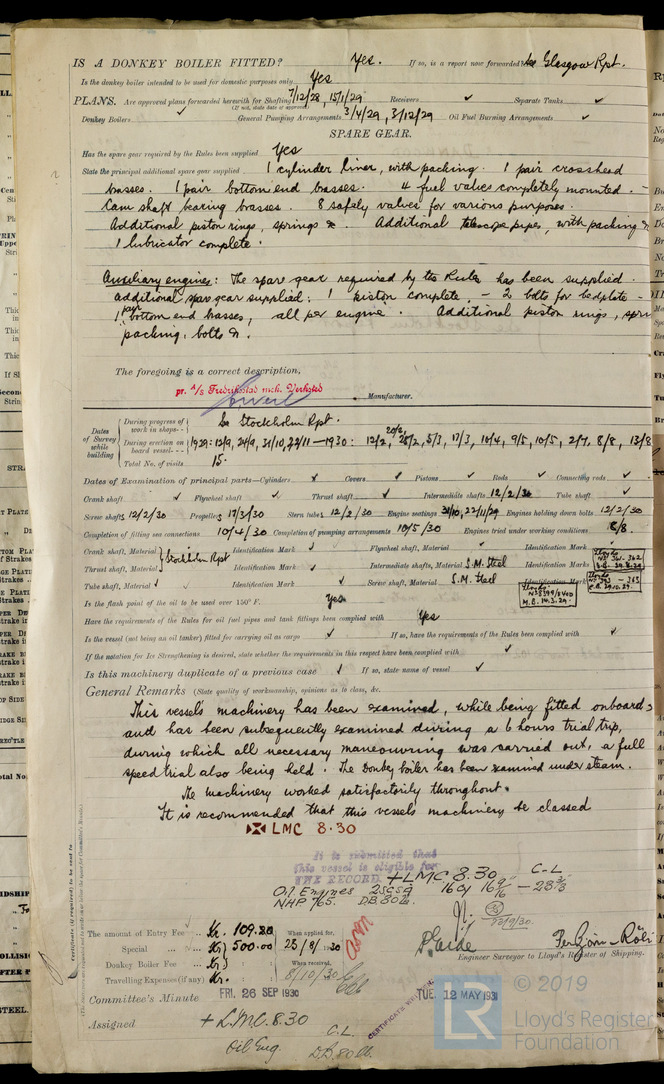 IS A DONKEY BOILER FITTED? Yes. If so, is a report now forwarded? See Glasgow Rpt.
Is the donkey boiler intended to be used for domestic purposes only Yes
PLANS. Are approved plans forwarded herewith for Shafting 7/12/28, 15/1/29 Receivers ✓ Separate Tanks ✓
(If not, state date of approval)
Donkey Boilers ✓ General Pumping Arrangements 3/4/29, 3/12/29 Oil Fuel Burning Arrangements ✓
SPARE GEAR.
Has the spare gear required by the Rules been supplied Yes
State the principal additional spare gear supplied 1 cylinder liner, with packing. 1 pair crosshead
brasses. 1 pair bottom end brasses. 4 fuel valves completely mounted. -
Cam shaft bearing brasses. 8 safety valves for various purposes.
Additional piston rings, springs &. Additional telescope pipes, with packing &
1 lubricator complete.
Auxiliary engines: The spare gear required by the Rules has been supplied.
additional spare gear supplied: 1 piston complete, - 2 bolts for bedplate -
1 pair bottom end brasses, all per engine. Additional piston rings, spri
packing, bolts &.
The foregoing is a correct description,
pr. A/S Fredrikstad mek. Verksted
Manufacturer.
Dates of Survey while building
During progress of work in shops - - See Stockholm Rpt.
During erection on board vessel - - - 1929: 12/9, 24/9, 31/10, 22/11 — 1930: 12/2, 20/2, 28/2, 5/3, 17/3, 10/4, 9/5, 10/5, 2/7, 8/8, 13/8
Total No. of visits 15.
Dates of Examination of principal parts—Cylinders ✓ Covers ✓ Pistons ✓ Rods ✓ Connecting rods ✓
Crank shaft ✓ Flywheel shaft ✓ Thrust shaft ✓ Intermediate shafts 12/2/30 Tube shaft ✓
Screw shaft 12/2/30 Propeller 17/3/30 Stern tube 12/2/30 Engine seatings 31/10, 22/11/29 Engines holding down bolts 12/2/30
Completion of fitting sea connections 10/4/30 Completion of pumping arrangements 10/5/30 Engines tried under working conditions 8/8.
Crank shaft, Material } Stockholm Rpt Identification Mark ✓ Flywheel shaft, Material ✓ Identification Mark ✓
Thrust shaft, Material Identification Mark ✓ Intermediate shafts, Material S.M. Steel Identification Marks
Tube shaft, Material ✓ Identification Mark ✓ Screw shaft, Material S.M. Steel Identification Mark
Lloyd's
No 8399/8400
M.B. 14.3.29.
Is the flash point of the oil to be used over 150° F. Yes
Have the requirements of the Rules for oil fuel pipes and tank fittings been complied with Yes
Is the vessel (not being an oil tanker) fitted for carrying oil as cargo ✓ If so, have the requirements of the Rules been complied with ✓
If the notation for Ice Strengthening is desired, state whether the requirements in this respect have been complied with ✓
Is this machinery duplicate of a previous case ✓ If so, state name of vessel ✓
General Remarks (State quality of workmanship, opinions as to class, &c.
This vessels machinery has been examined, while being fitted onboard,
and has been subsequently examined during a 6 hours trial trip,
during which all necessary maneouvring was carried out, a full
speed trial also being held. The Donkey boiler has been examined under steam.
The machinery worked satisfactorily throughout.
It is recommended that this vessels machinery be classed
LMC 8.30
It is submitted that
this vessel is eligible for
THE RECORD. + LMC 8.30 C-L
Oil Engines 2SCSA
NHP 765. DB 80 lb.
12/9/30.
The amount of Entry Fee Kr. 109.20 When applied for,
Special Kr. 500.00 23/8/1930
Donkey Boiler Fee Kr. When received,
Travelling Expenses (if any) Kr. 8/10/30
Engineer Surveyor to Lloyd's Register of Shipping.
Committee's Minute FRI. 26 SEP 1930 TUE. 12 MAY 1931
Assigned + L.M.C. 8.30 C.L.
Oil Eng. D.B. 80 lb.
© 2019
LR
Lloyd's Register
Foundation